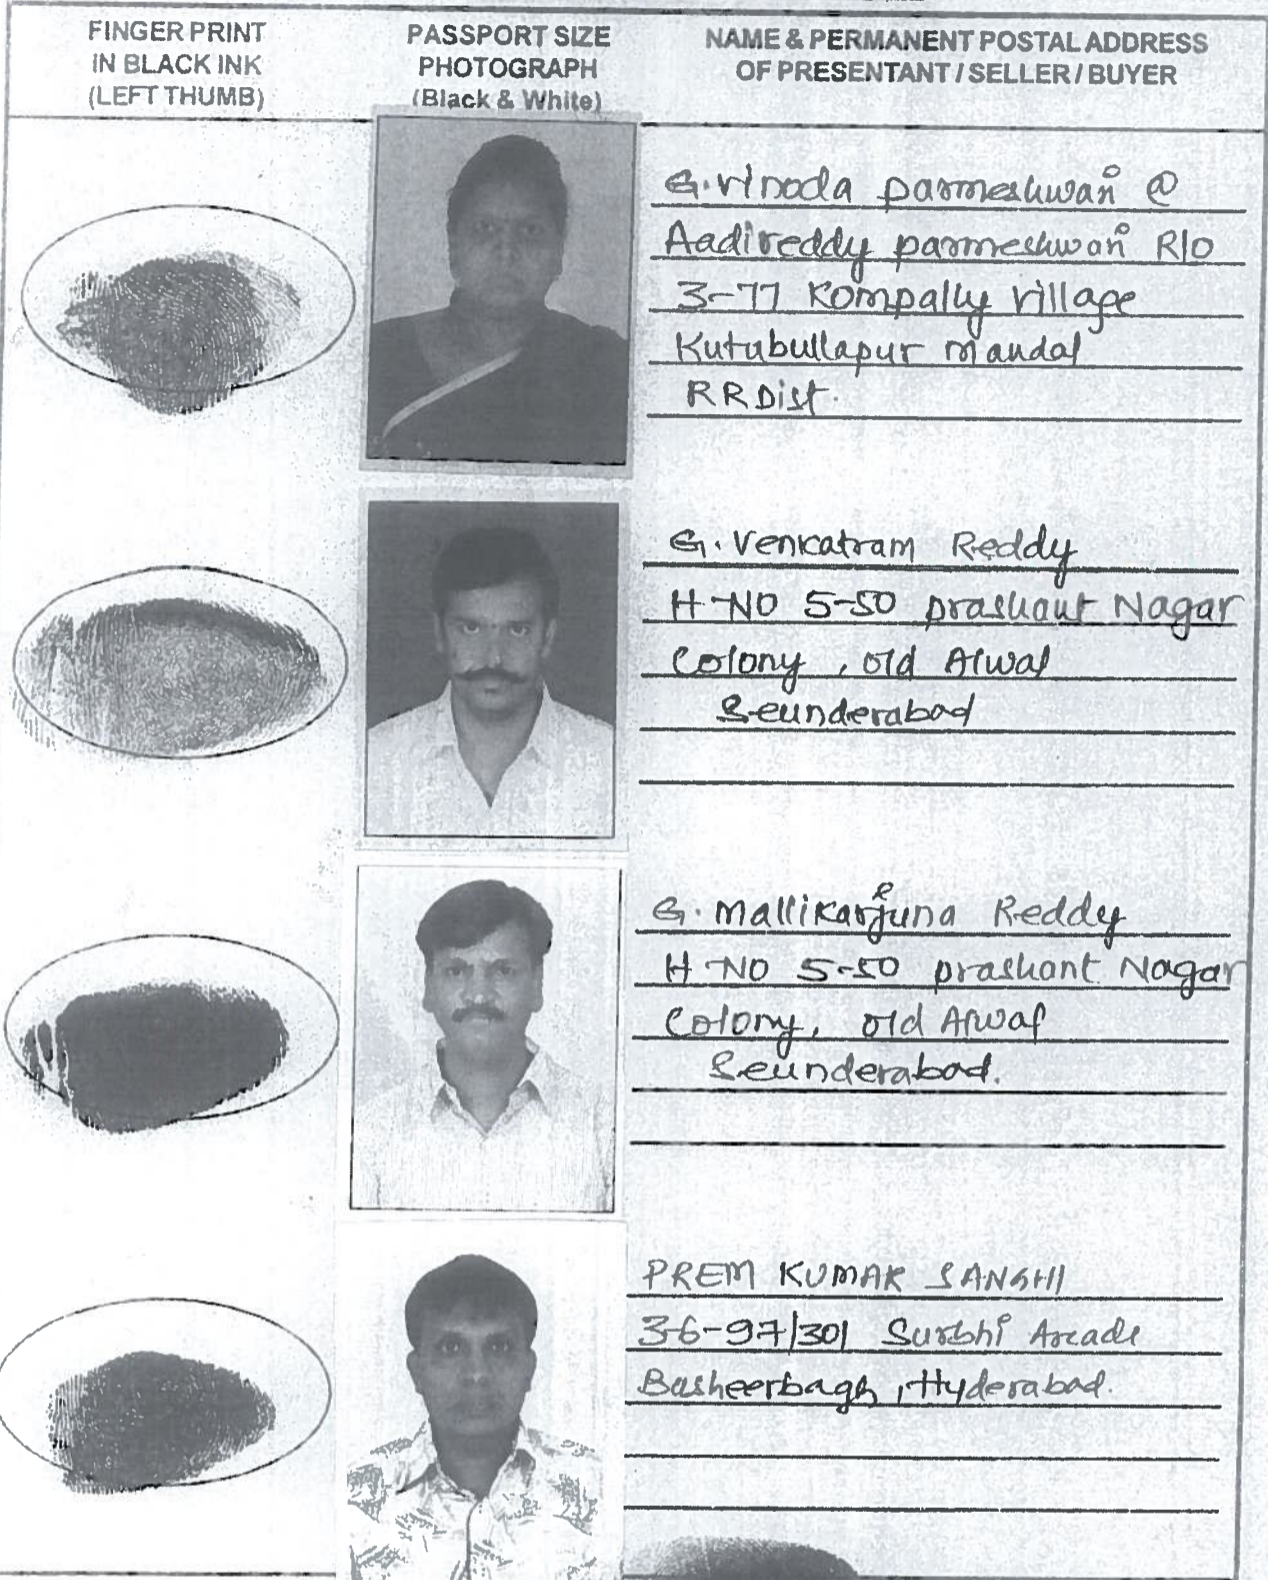 FINGER PRINT
IN BLACK INK
(LEFT THUMB)
PASSPORT SIZE
PHOTOGRAPH
(Black & White)
NAME & PERMANENT POSTAL ADDRESS
OF PRESENTANT / SELLER / BUYER
G. Vinoda parmeshwari @
Aadireddy parmeshwari R/o
3-77 Kompally Village
Kutubullapur Mandal
RR Dist.
G. Venkatram Reddy
H-NO 5-50 prashant Nagar
Colony, old Alwal
Secunderabad
G. Mallikarjuna Reddy
H-NO 5-50 prashant Nagar
Colony, old Alwal
Secunderabad.
PREM KUMAR SANGHI
3-6-97/301 Surbhi Arcade
Basheerbagh, Hyderabad.